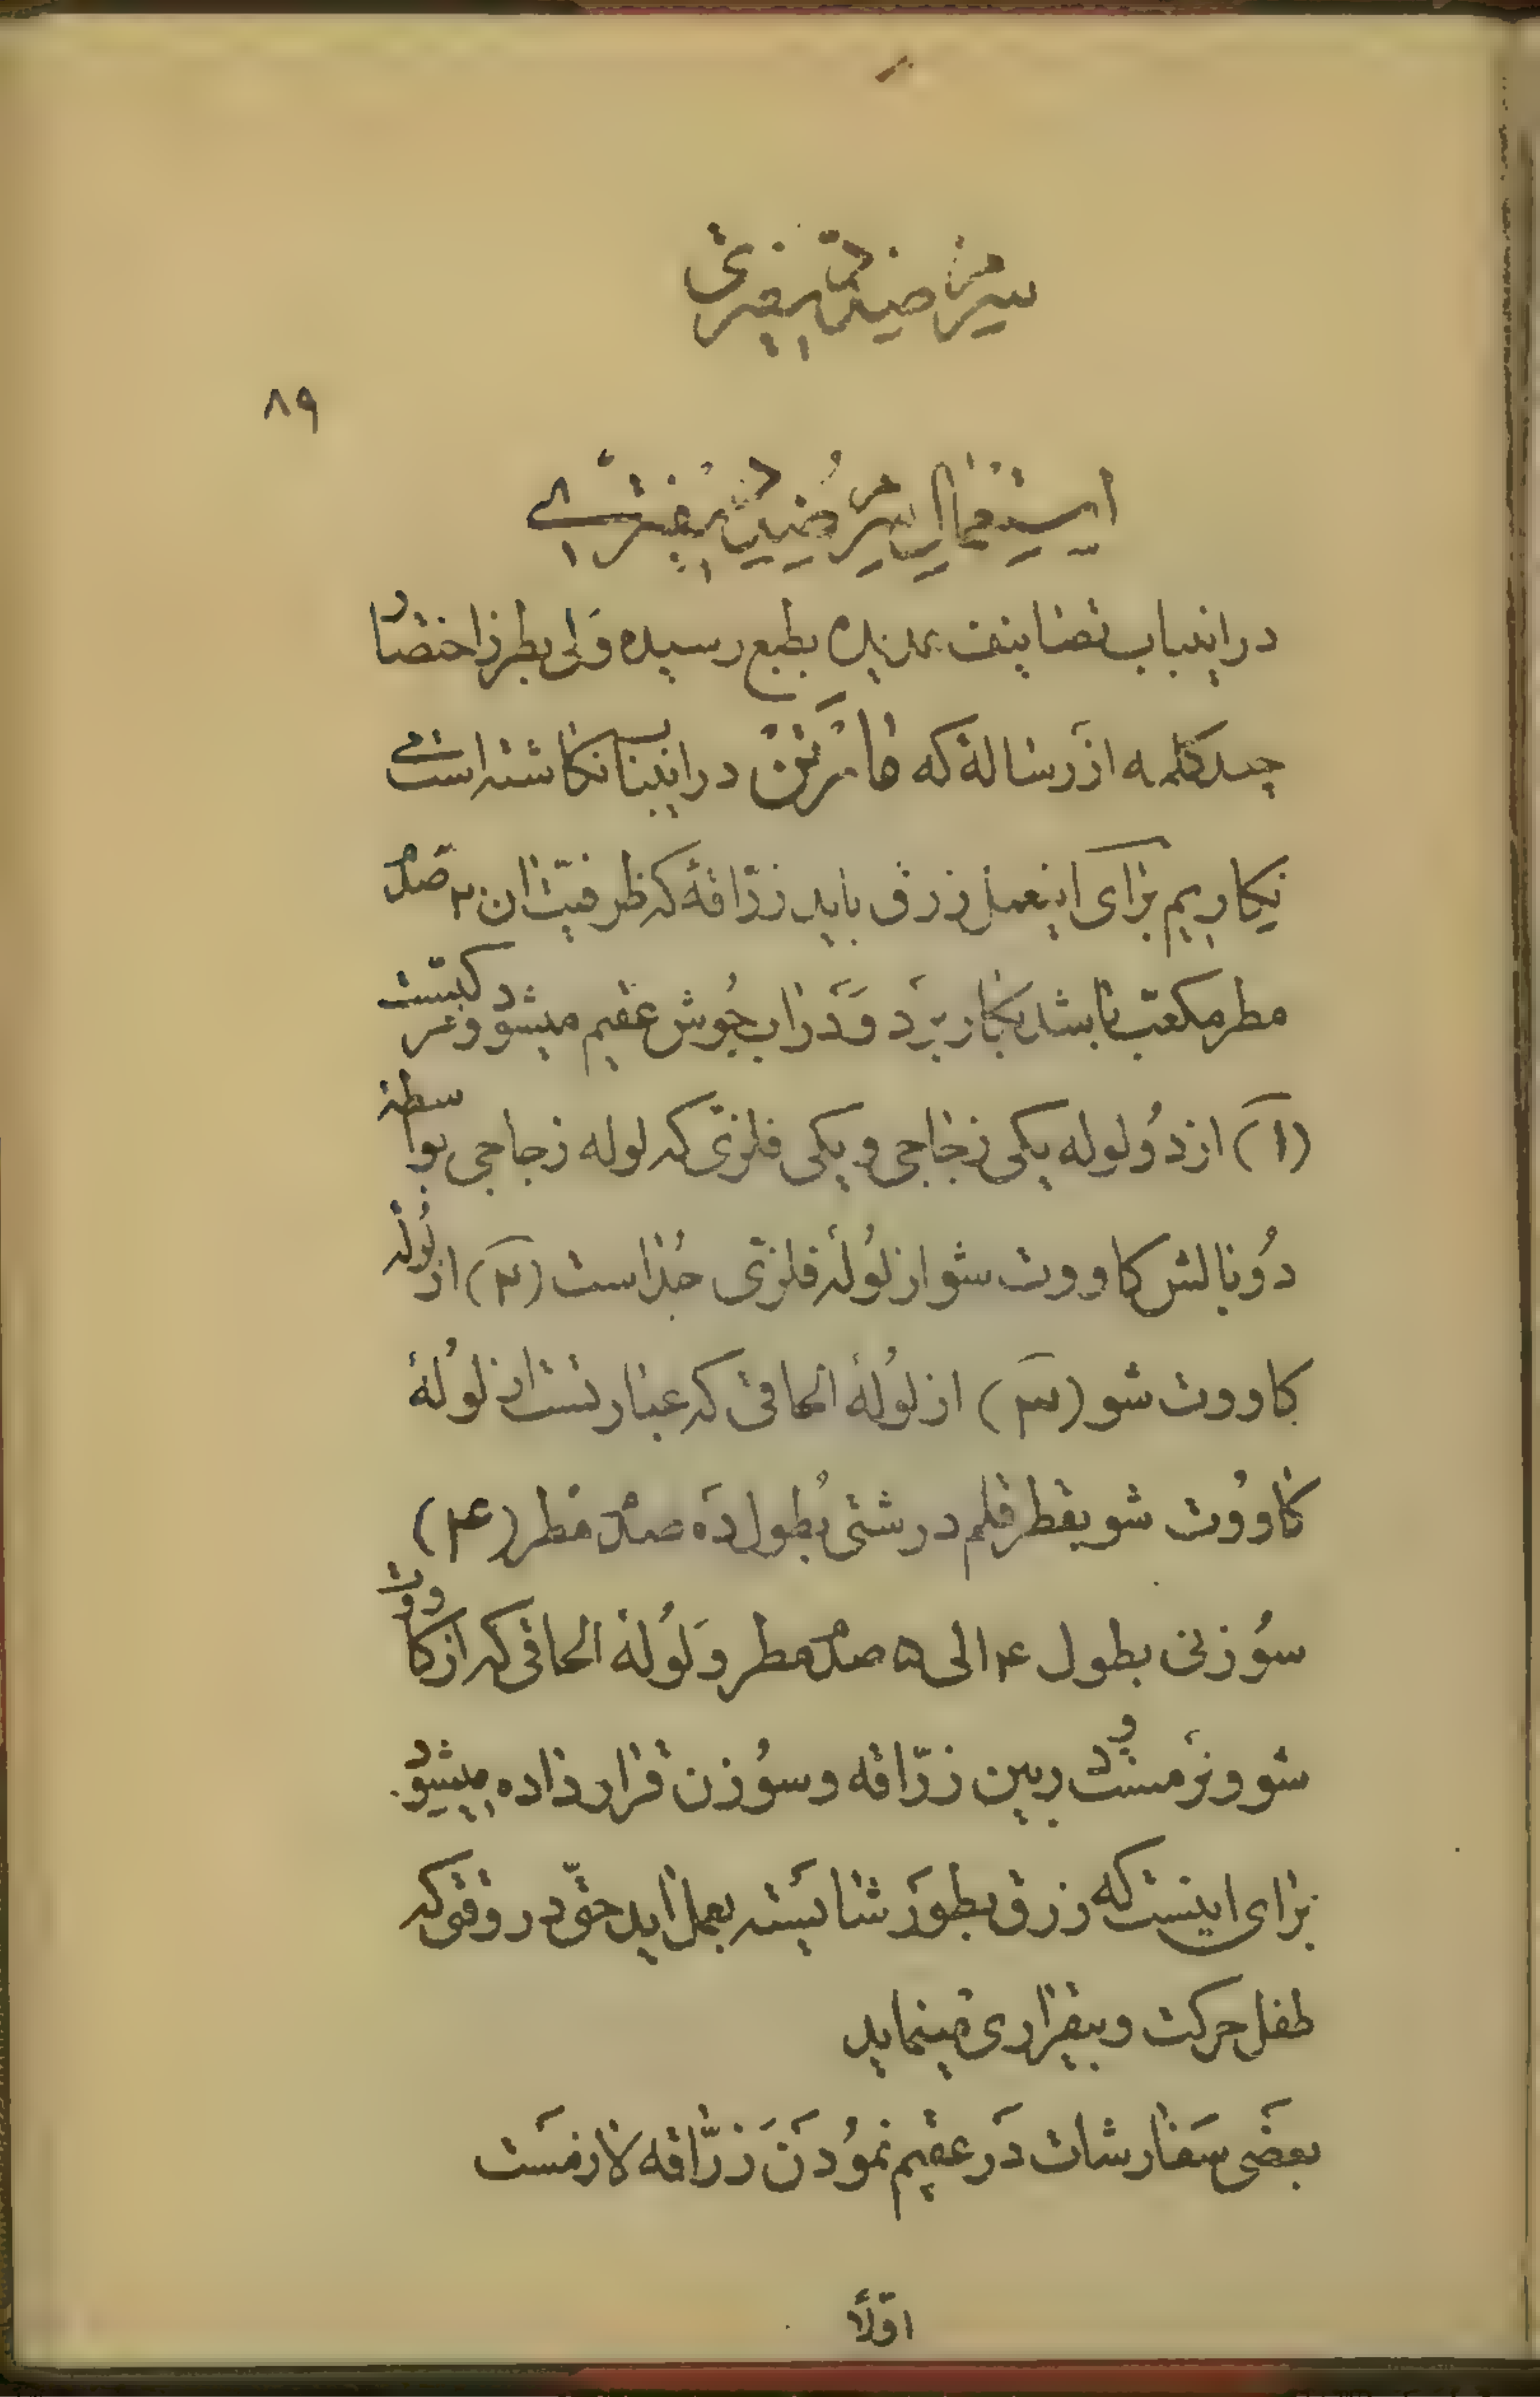 سرم ضد دیفتری
۸۹
استعمال سرم ضد دیفتری
در اینباب تصانیف عدیده بطبع رسیده ولی بطرز اختصار
چند کلمه از رساله که در اینباب نگاشته است
نیکاریم برای اینعمل زرق باید زراقهٔ که ظرفیت آن ۲۰ صدم
مطر مکعب باشد بکار برد و در آب جوش عقیم میشود و مرکبست
(۱) از دو لوله یکی زجاجی و یکی فلزی که لوله زجاجی بواسطهٔ
دو بالش کاووت شو از لوله فلزی جدا است (۲) از لوله
کاووت شو (۳) از لولهٔ الحاقی که عبارتست از لولهٔ
کاووت شو بقطر قلم درشتی بطول ده صدم مطر (۴)
سوزنی بطول ۴ الی ۵ صدم مطر و لولهٔ الحاقی که از کاووت
شو و نرمست و در بین زراقه و سوزن قرار داده میشود
برای اینست که زرق بطور شایسته بعمل آید حتی در وقتی که
طفل حرکت و بیقراری مینماید
بعضی سفارشات در عقیم نمودن زراقه لازمست
اولاً